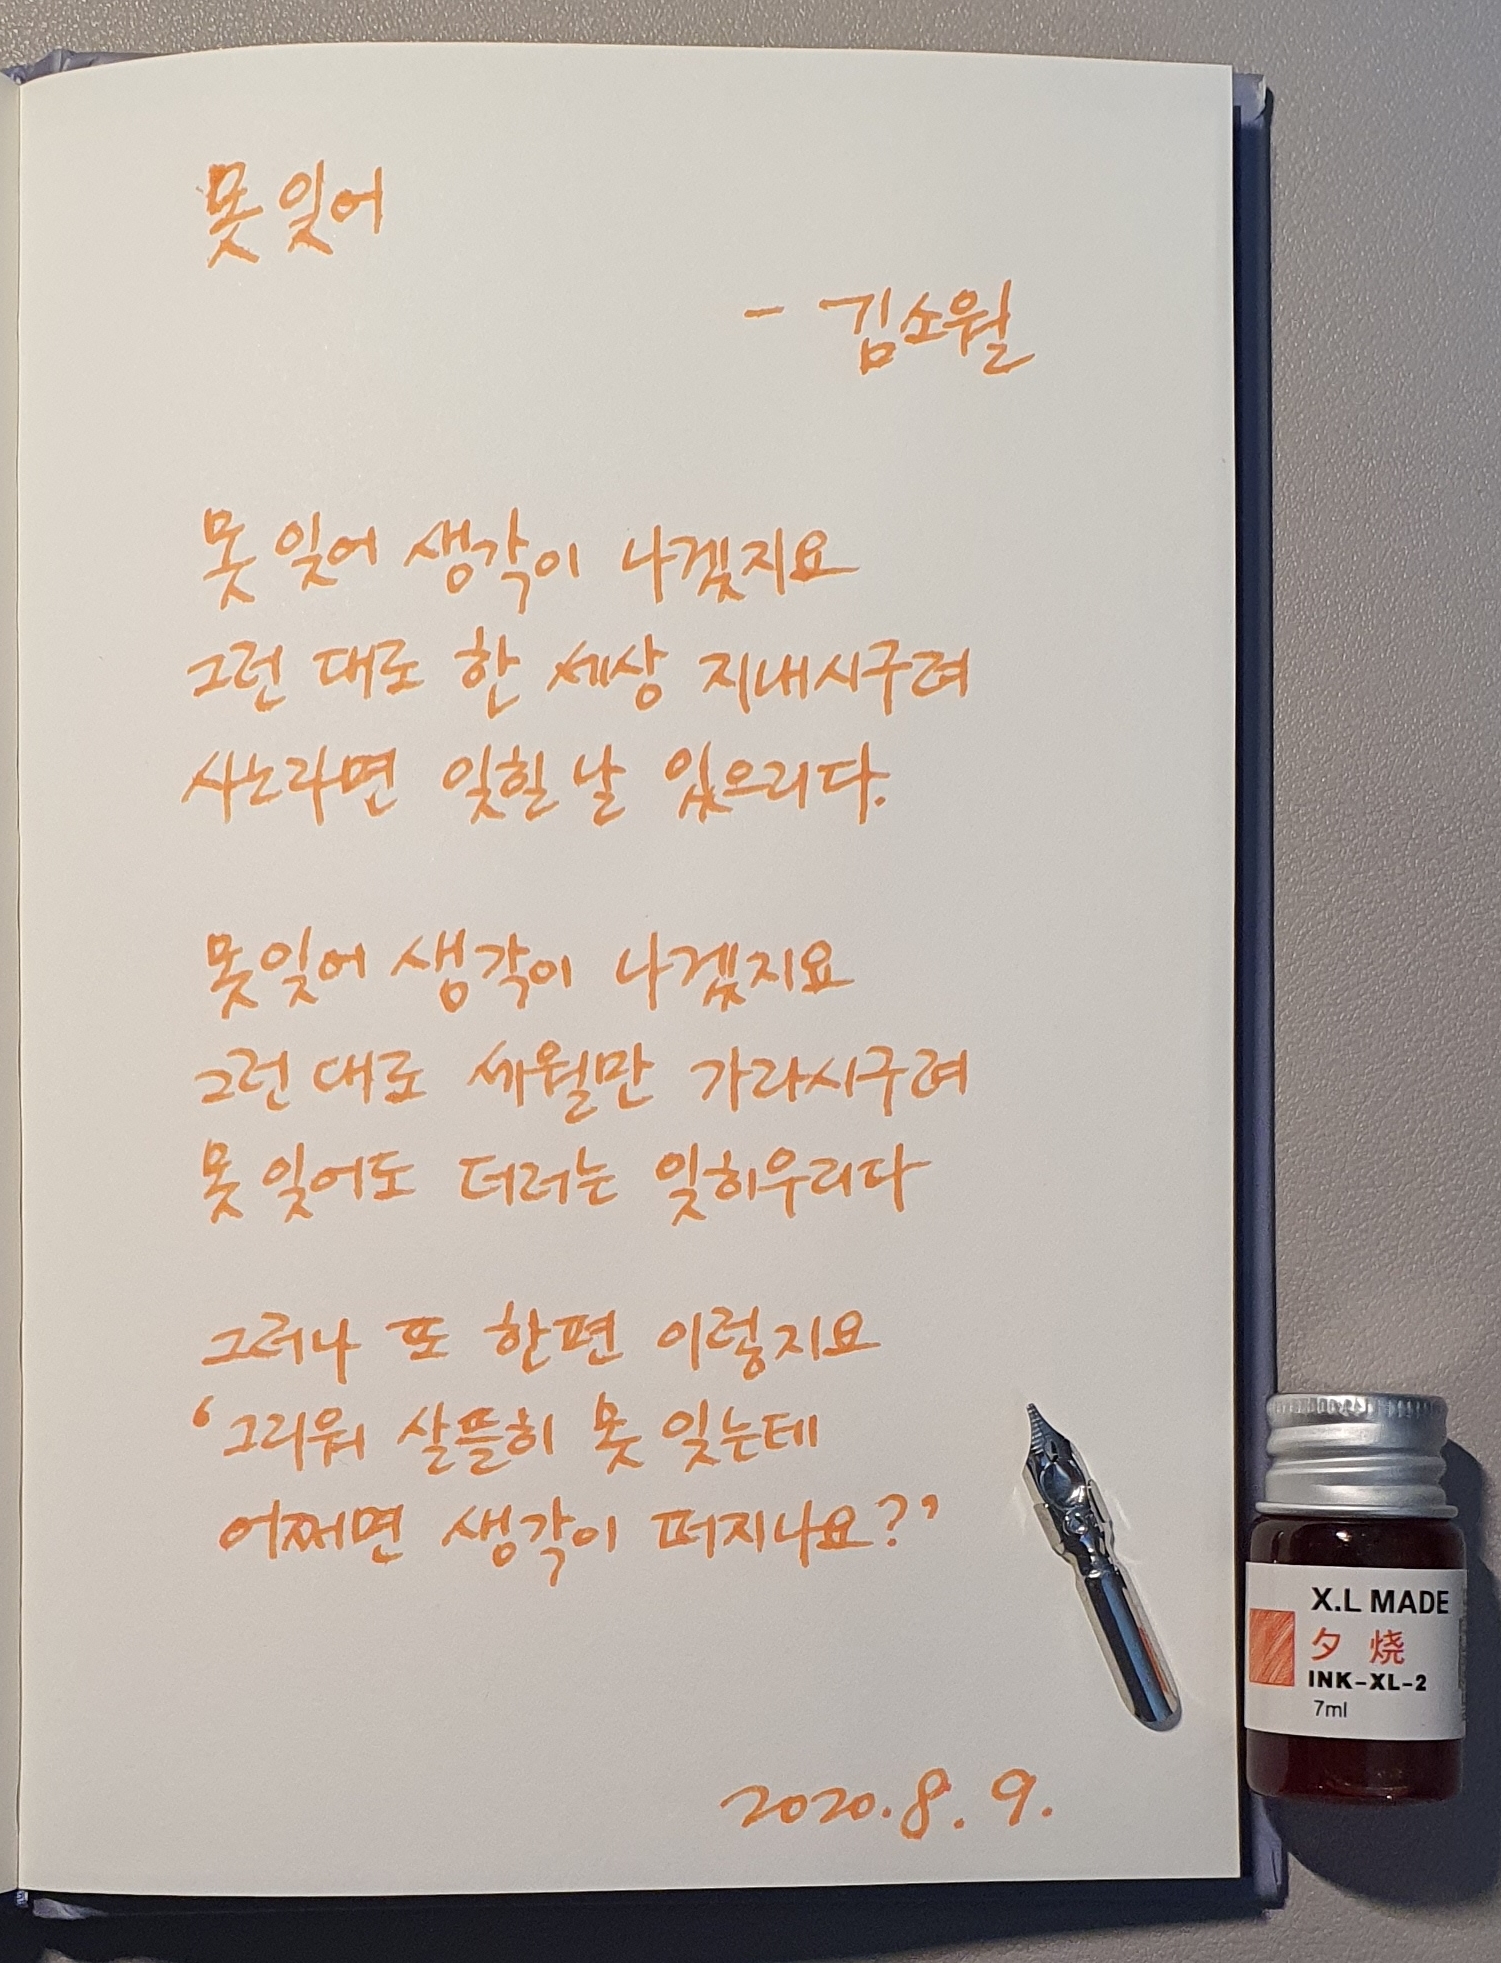 못 잊어
- 김소월
못 잊어 생각이 나겠지요
그런 대로 한 세상 지내시구려
사노라면 잊힐 날 있으리다.
못 잊어 생각이 나겠지요
그런 대로 세월만 가라시구려
못 잊어도 더러는 잊히우리다
그러나 또 한편 이렇지요
‘그리워 살뜰히 못 잊는데
어쩌면 생각이 떠지나요?’
2020. 8. 9.
X.L MADE
夕 烧
INK-XL-2
7ml